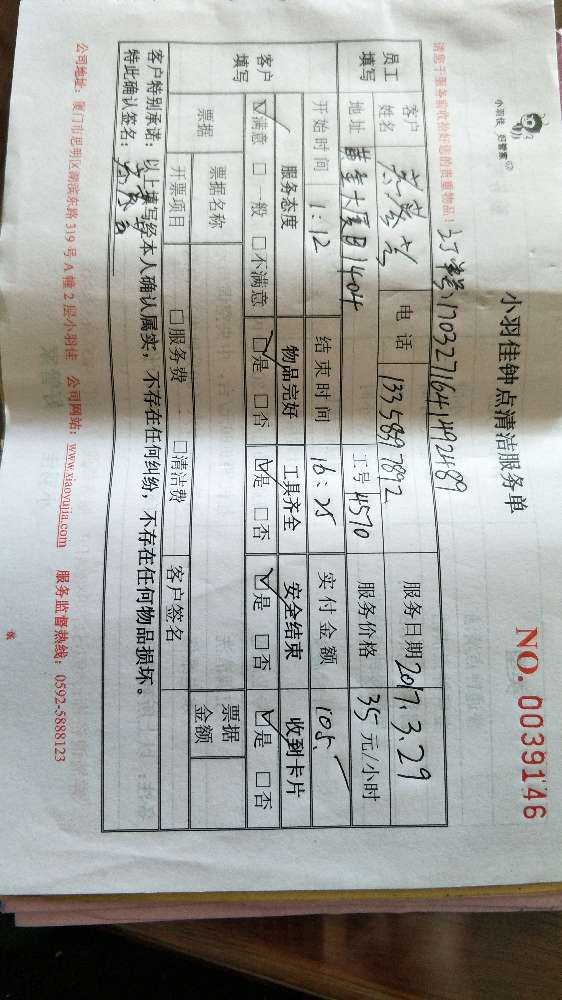 小羽佳 好管家
小羽佳钟点清洁服务单
NO. 0039146
请您于服务前收拾好您的贵重物品！
订单号1703271641492489
员工填写
客户姓名
电话 13358397892
服务日期 2017.3.29
地址 黄金大厦B1404
工号 4570
服务价格 35元/小时
开始时间 1:12
结束时间 16:25
实付金额 105.
客户填写
服务态度 物品完好 工具齐全 安全结束 收到卡片
☑满意 □一般 □不满意 ☑是 □否 ☑是 □否 ☑是 □否 ☑是 □否
票据
票据名称
票据金额
开票项目 □服务费 □清洁费 客户签名
客户特别承诺：以上填写经本人确认属实，不存在任何纠纷，不存在任何物品损坏。
特此确认签名：
公司地址：厦门市思明区湖滨东路319号A幢2层小羽佳 公司网站：www.xiaoyujia.com 服务监督热线：0592-5888123